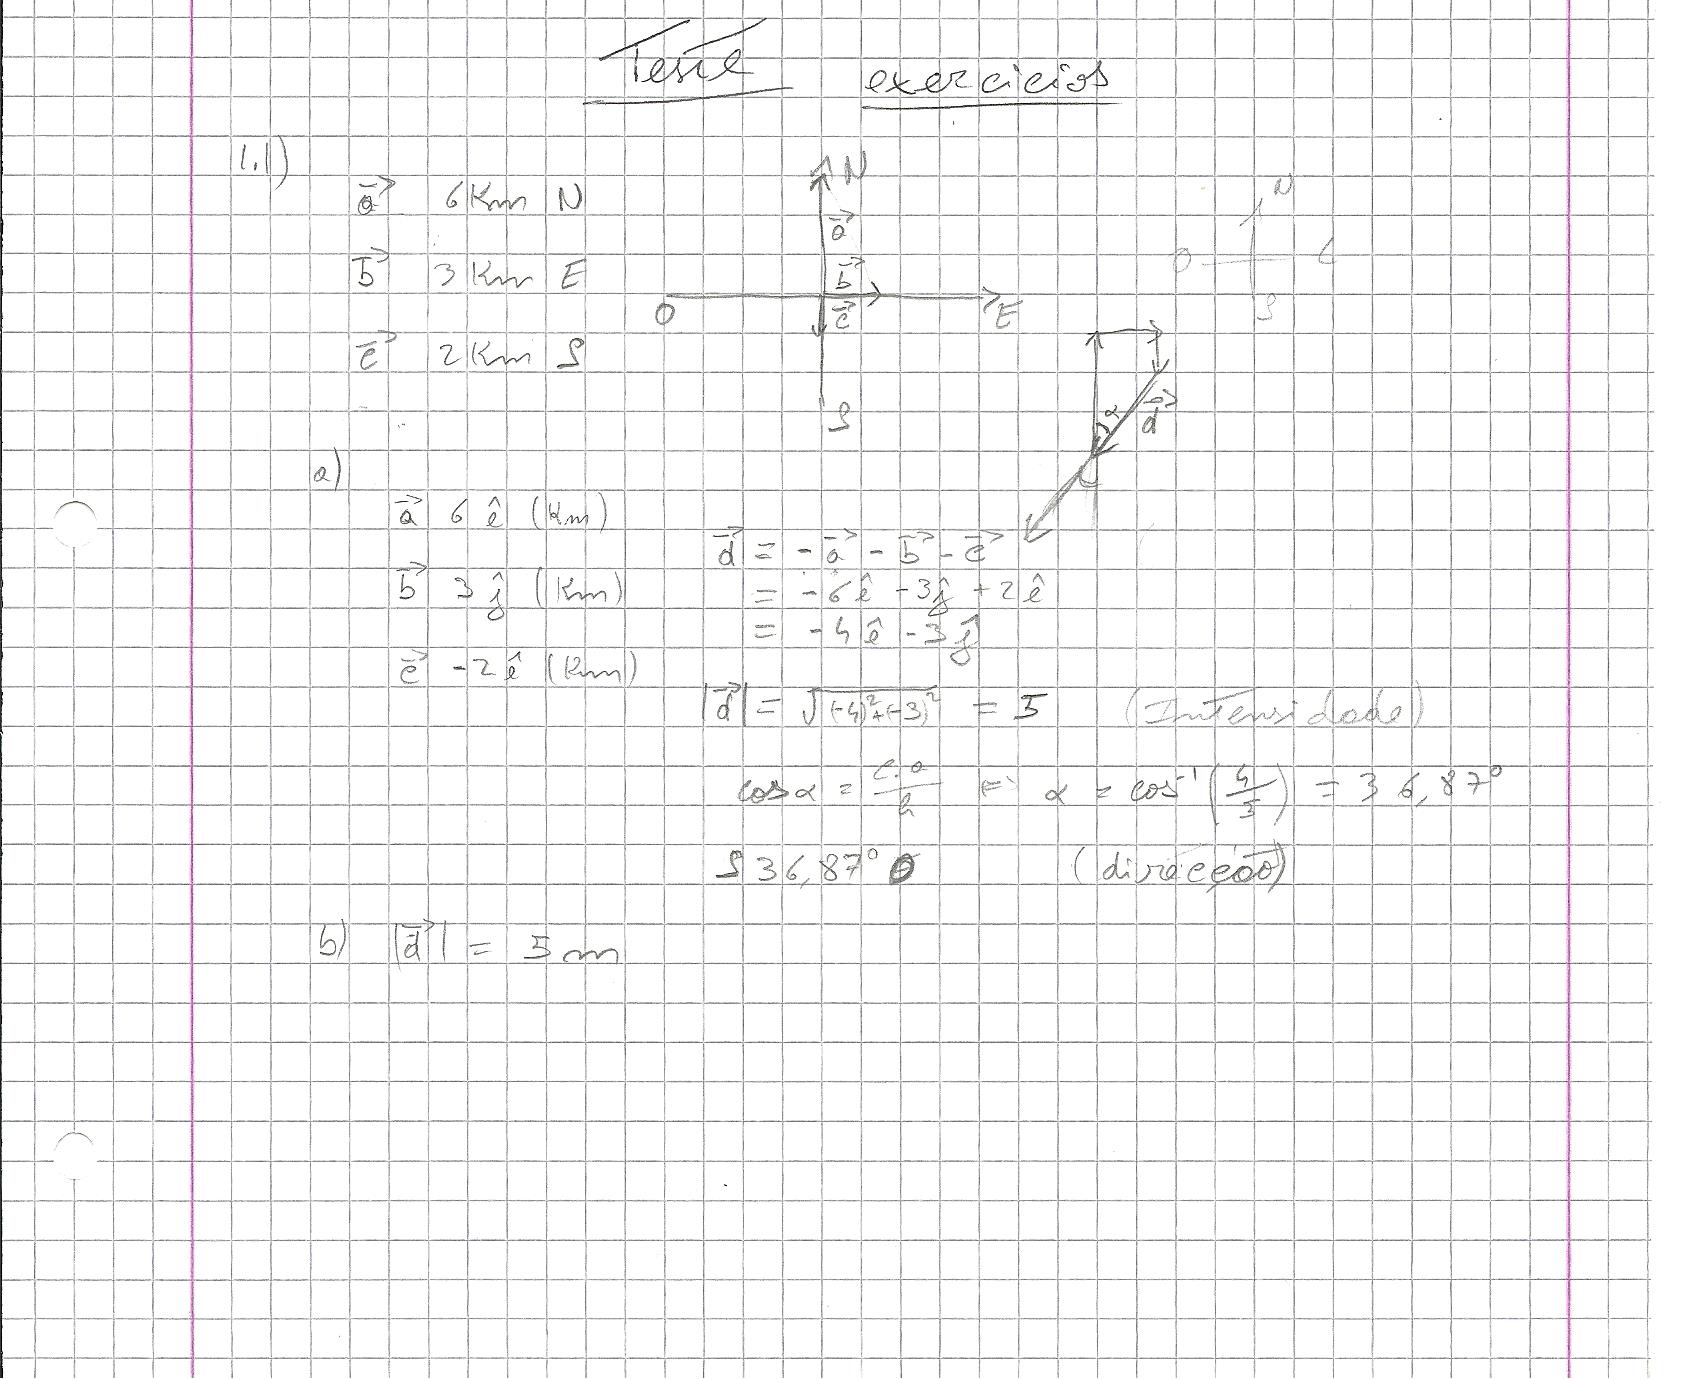 Teste exercicios
1.1)
a⃗ 6 Km N
b⃗ 3 Km E
c⃗ 2 Km S
N
a⃗
b⃗
O c⃗ E
S
N
O L
S
α d⃗
a)
a⃗ 6 î (Km)
b⃗ 3 ĵ (Km)
c⃗ -2 î (Km)
d⃗ = - a⃗ - b⃗ - c⃗
= -6 î - 3 ĵ + 2 î
= -4 î - 3 ĵ
|d⃗| = √((-4)²+(-3)²) = 5 (Intensidade)
cos α = c.a/h ⇔ α = cos⁻¹ (4/5) = 36,87°
S 36,87° O (direcção)
b) |d⃗| = 5 m